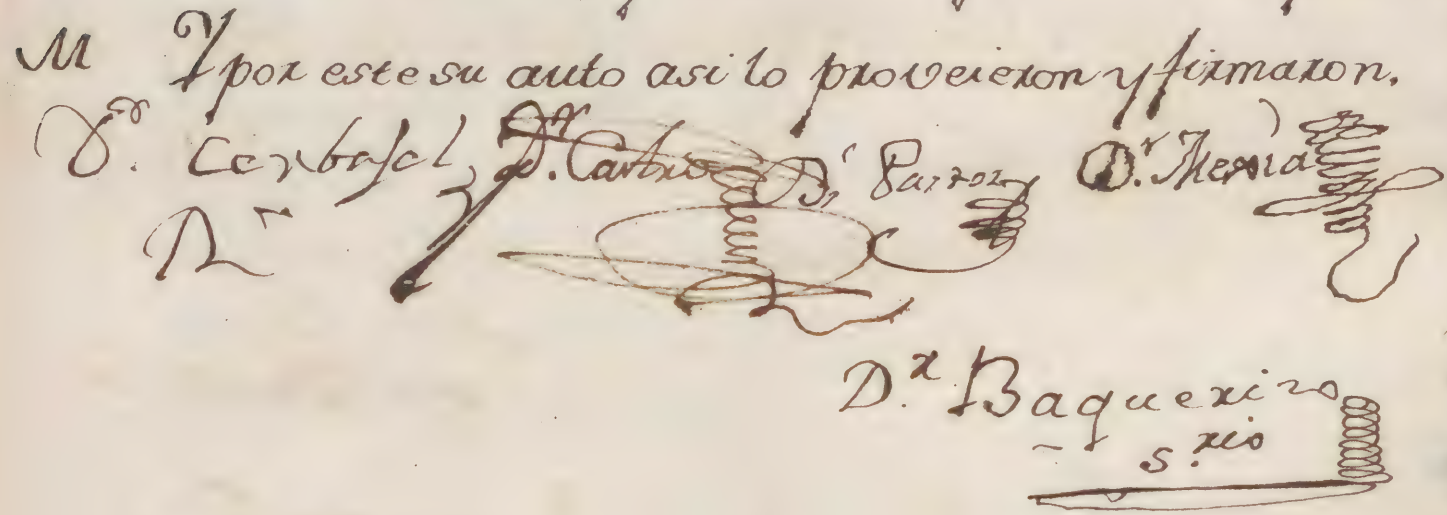 M Y por este su auto asi lo proveieron y firmaron.
D.ᵒʳ Carbajal D.ʳ Castro D.ʳ Parron D.ʳ Mexia
R.ʳ
D.ʳ Baquerizo
s.ʳⁱᵒ